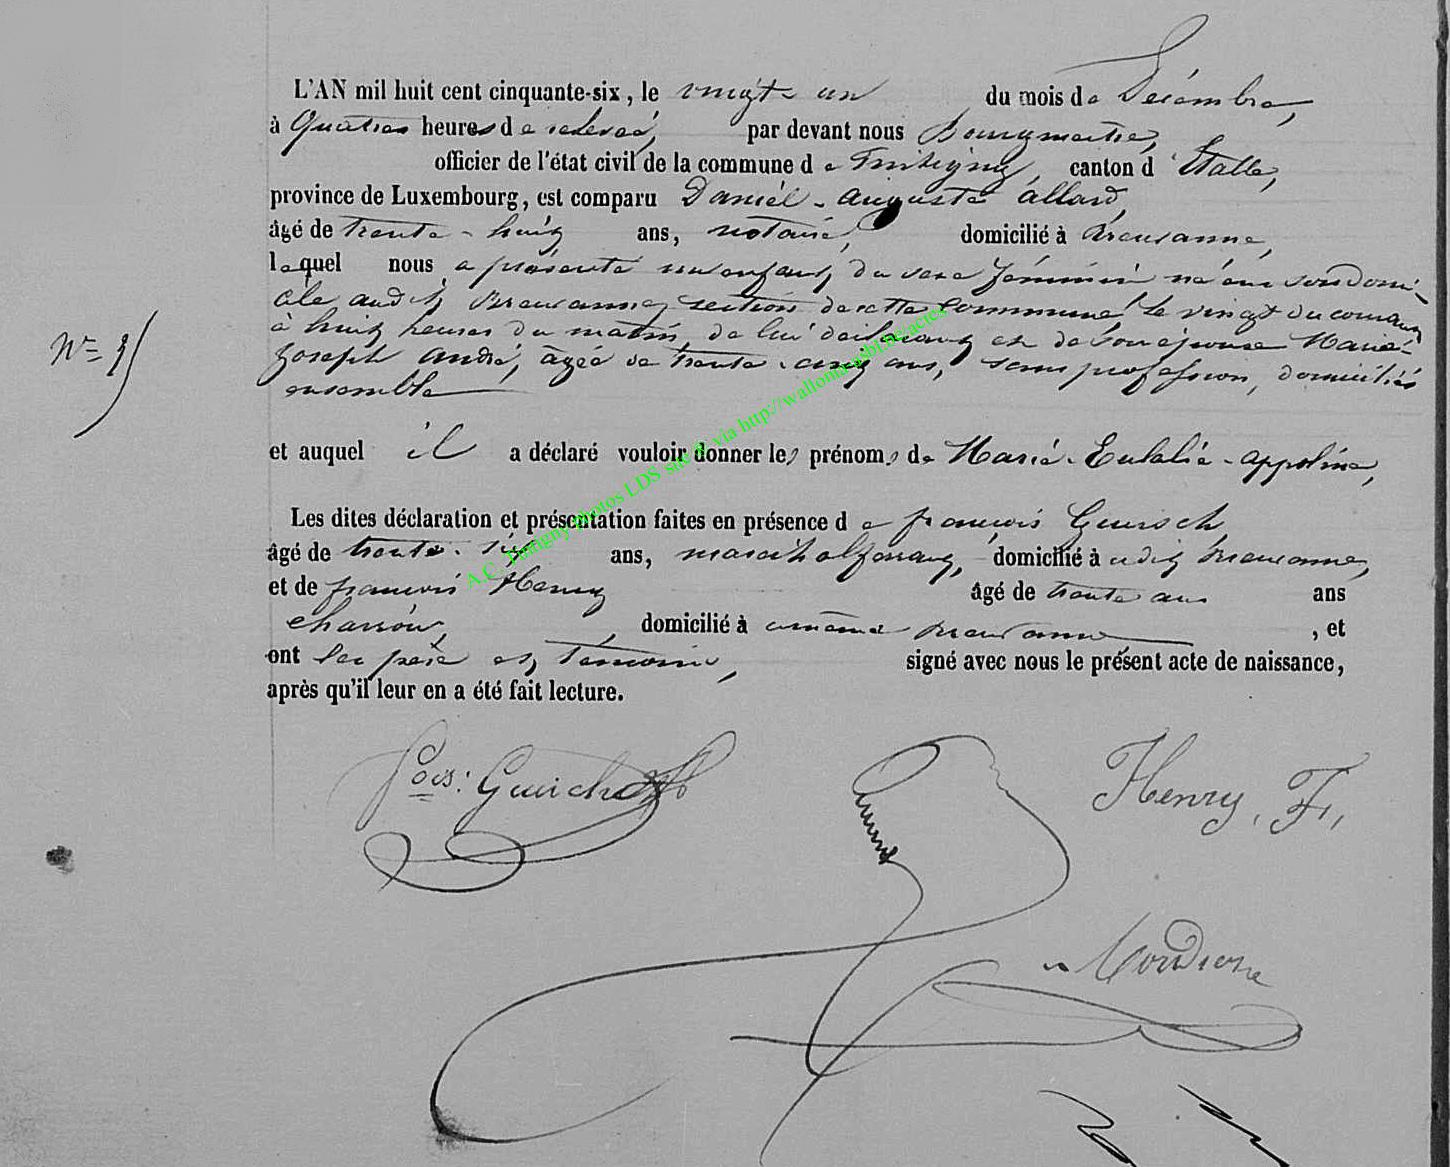 L'AN mil huit cent cinquante-six, le vingt un du mois de Décembre,
à Quatres heures de relevée, par devant nous Bourgmestre,
officier de l'état civil de la commune de Tintigny, canton d'Etalle,
province de Luxembourg, est comparu Daniel-Auguste Allard,
âgé de trente-huit ans, notaire, domicilié à Breuvanne,
lequel nous a présenté un enfant du sexe féminin né en son domi-
cile audit Breuvanne, section de cette commune, le vingt du courant
à huit heures du matin, de lui déclarant et de son épouse Marie-
N° 
Joseph André, âgée de trente-cinq ans, sans profession, domiciliés
ensemble
et auquel il a déclaré vouloir donner les prénoms de Marie-Eulalie-Appoline,
Les dites déclaration et présentation faites en présence de françois
âgé de trente-six ans, marechal ferrant, domicilié à udit Breuvanne,
et de françois Henry âgé de trente ans ans
charron, domicilié à même Breuvanne, et
ont les père et témoins, signé avec nous le présent acte de naissance,
après qu'il leur en a été fait lecture.
Henry, F,
A.C. Tintigny photos LDS site & via http://wallonia-asbl.be/actes